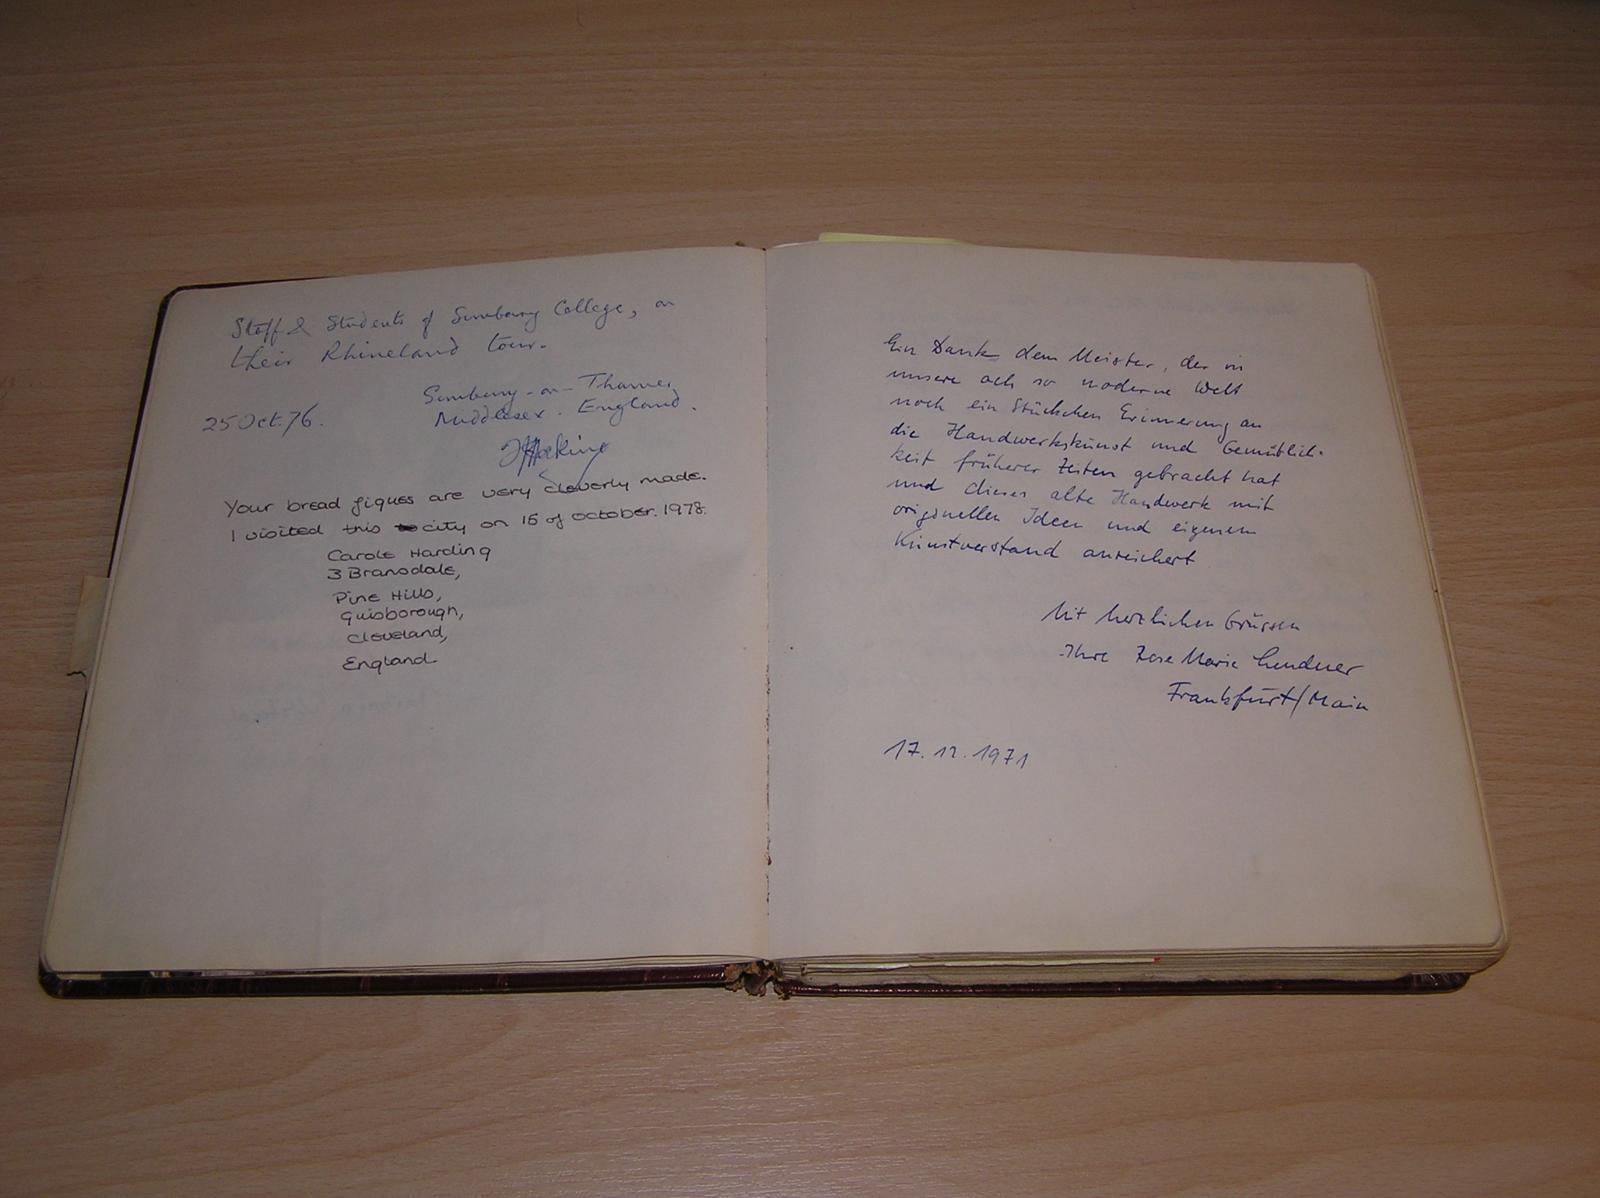 Staff & Students of Sunbury College, on
their Rhineland tour.
Sunbury-on-Thames,
Middlesex. England.
25 Oct. 76.
Your bread figues are very cleverly made.
I visited this city on 15 of october. 1978.
Carole Harding
3 Bransdale,
Pine Hills,
Guisborough,
Cleveland,
England
Ein Dank dem Meister, der in
unsere ach so moderne Welt
noch ein Stückchen Erinnerung an
die Handwerkskunst und Gemütlich-
keit früherer Zeiten gebracht hat
und dieses alte Handwerk mit
originellen Ideen und eigenem
Kunstverstand anreichert
Mit herzlichen Grüssen
Ihre Rose Marie
Frankfurt/Main
17. 12. 1971